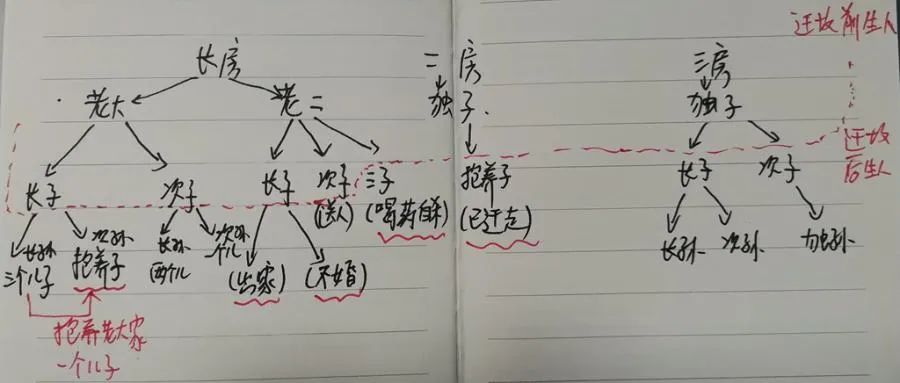 迁坟前生人
长房 二房 三房
老大 老二 独子 独子
迁坟后生人
长子 次子 长子 次子 三子 抱养子 长子 次子
(送人) (喝药自杀) (已迁走)
长孙 次孙 长孙 次孙 长孙 次孙 独孙
三个儿子 抱养子 两个儿 一个儿 (出家) (不婚)
抱养老大家
一个儿子